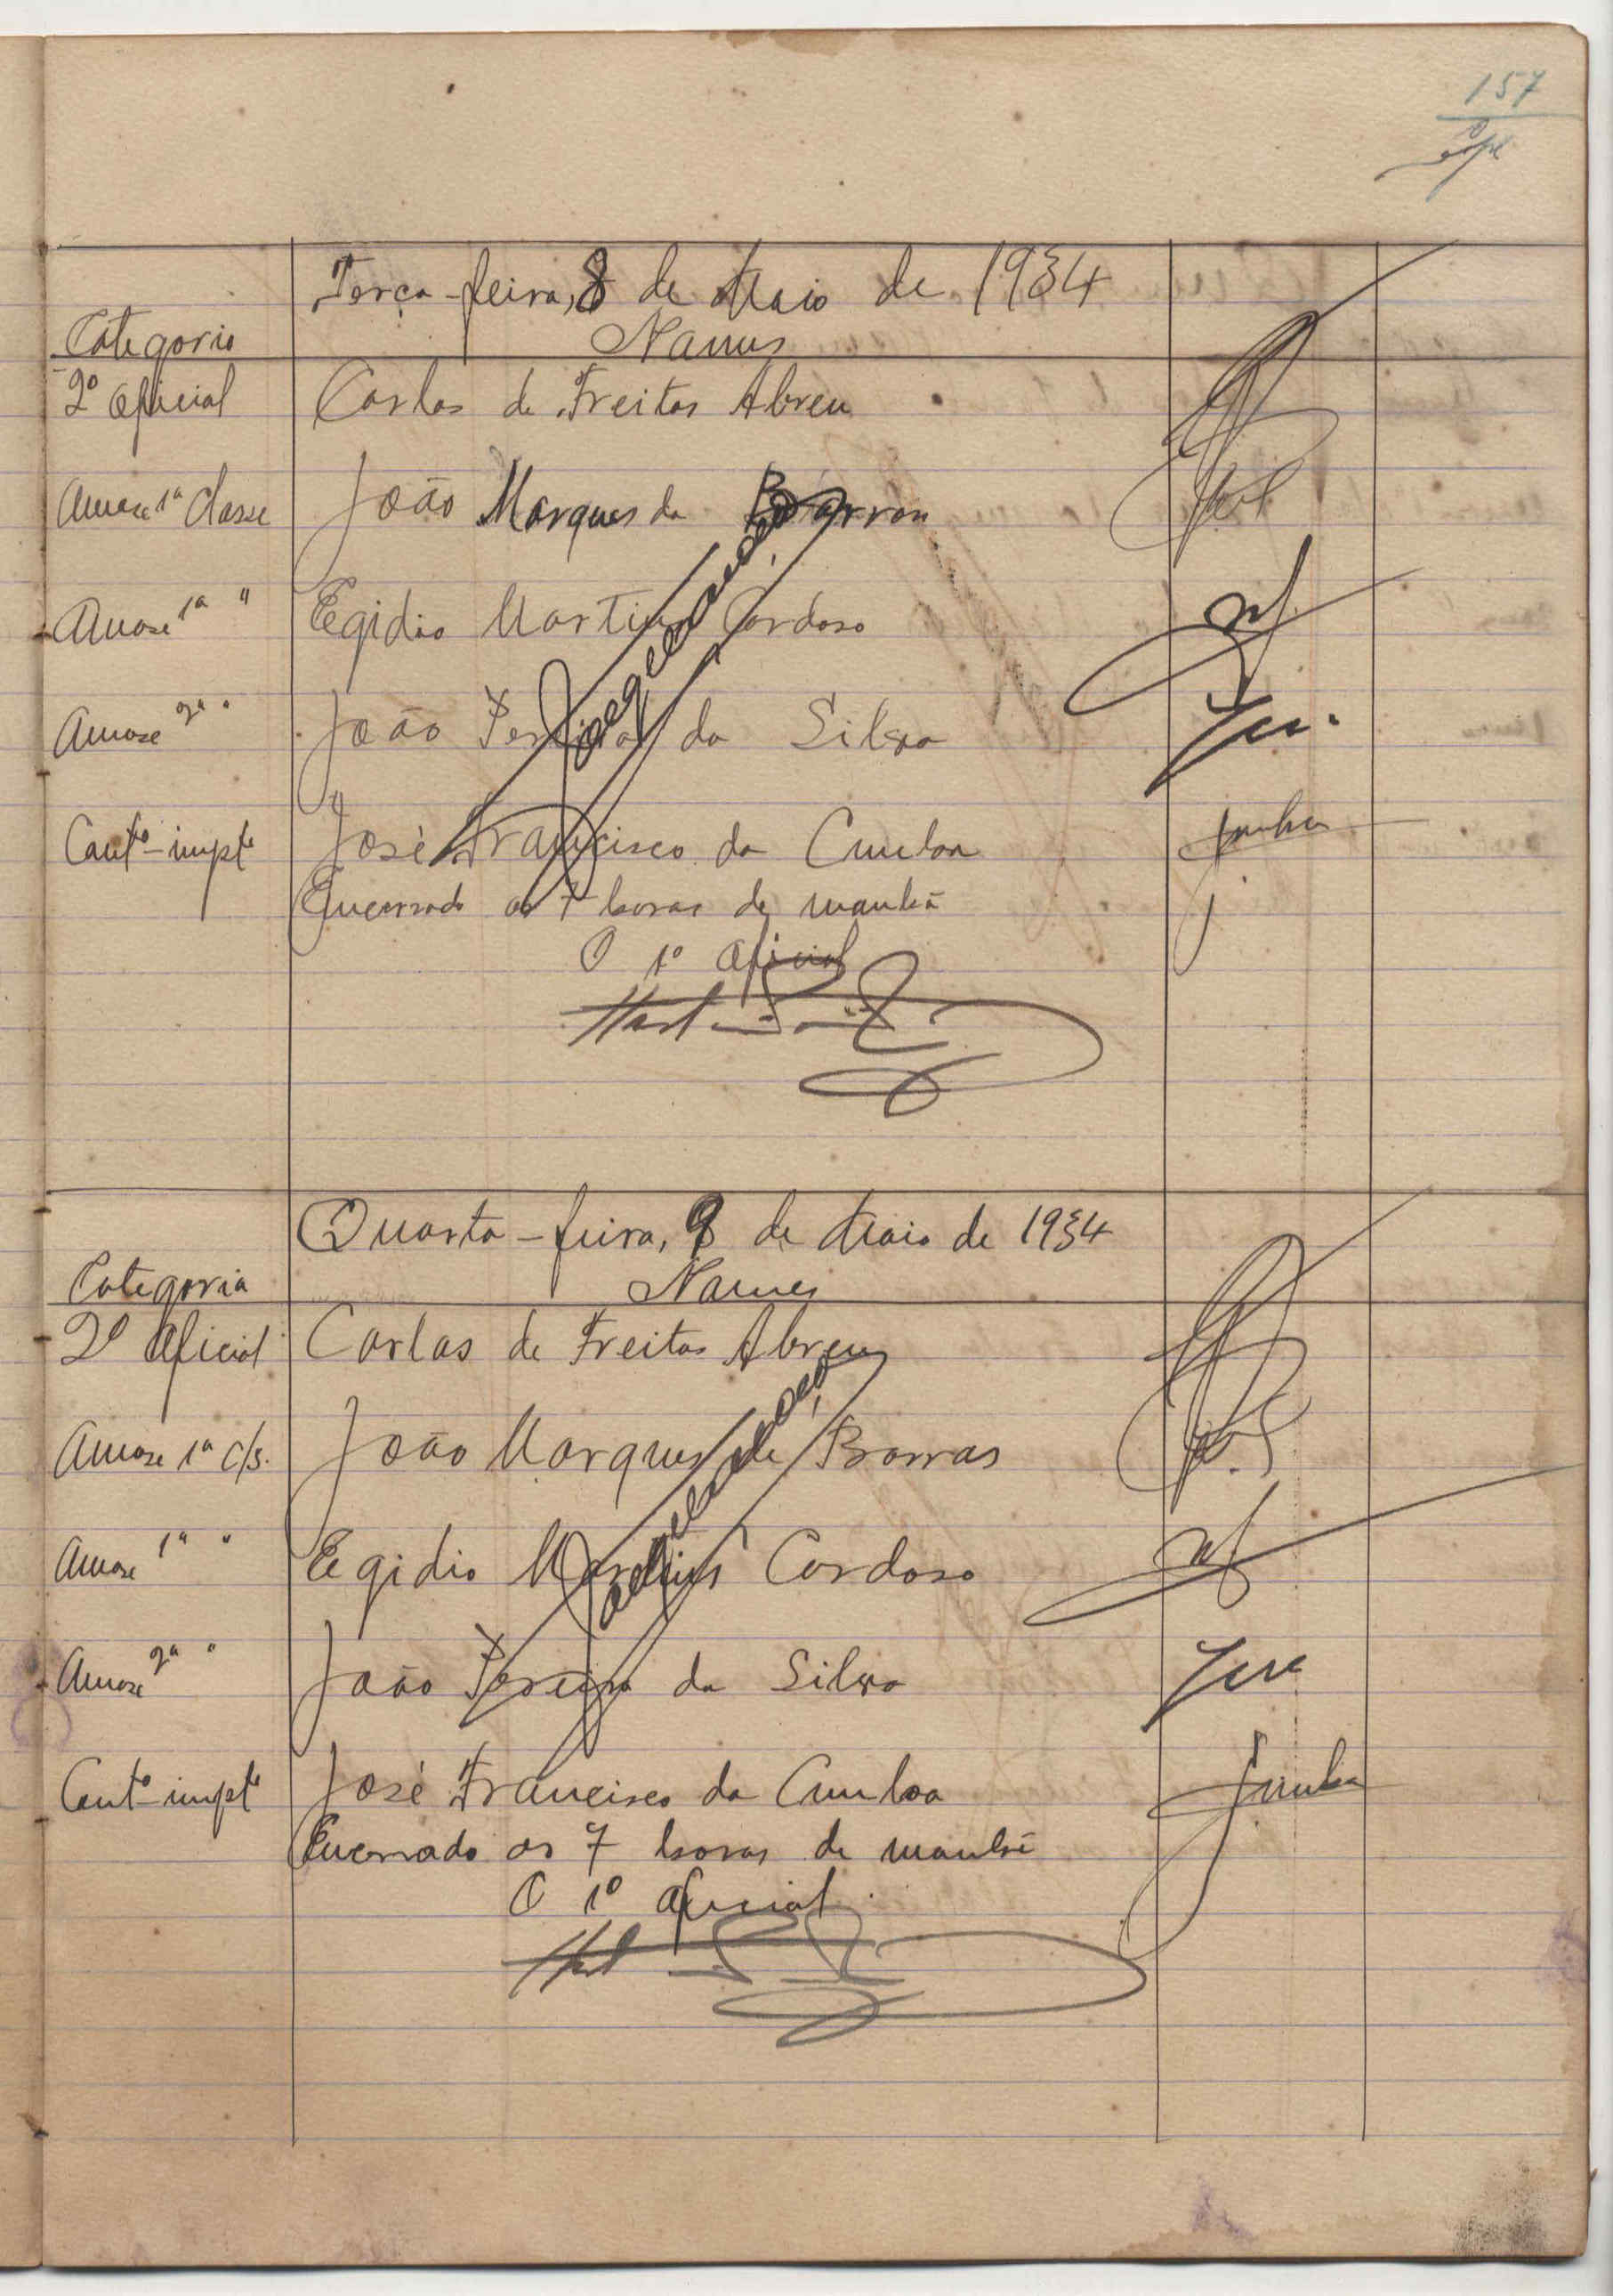 157
Terça-feira, 8 de Maio de 1934
Categoria Nomes
2º Oficial Carlos de Freitas Abreu
1ª Classe João Marques de Barros
1ª " Egidio Martins Cardoso
2ª " João Pereira da Silva
Contº-impte José Francisco da Cunha Cunha
Encerrado as 7 horas da manhã
O 1º Oficial
Quarta-feira, 9 de Maio de 1934
Categoria Nomes
2º Oficial Carlos de Freitas Abreu
1ª cls. João Marques de Barros
1ª " Egidio Martins Cardoso
2ª " João Pereira da Silva
Contº-impte José Francisco da Cunha Cunha
Encerrado as 7 horas da manhã
O 1º Oficial